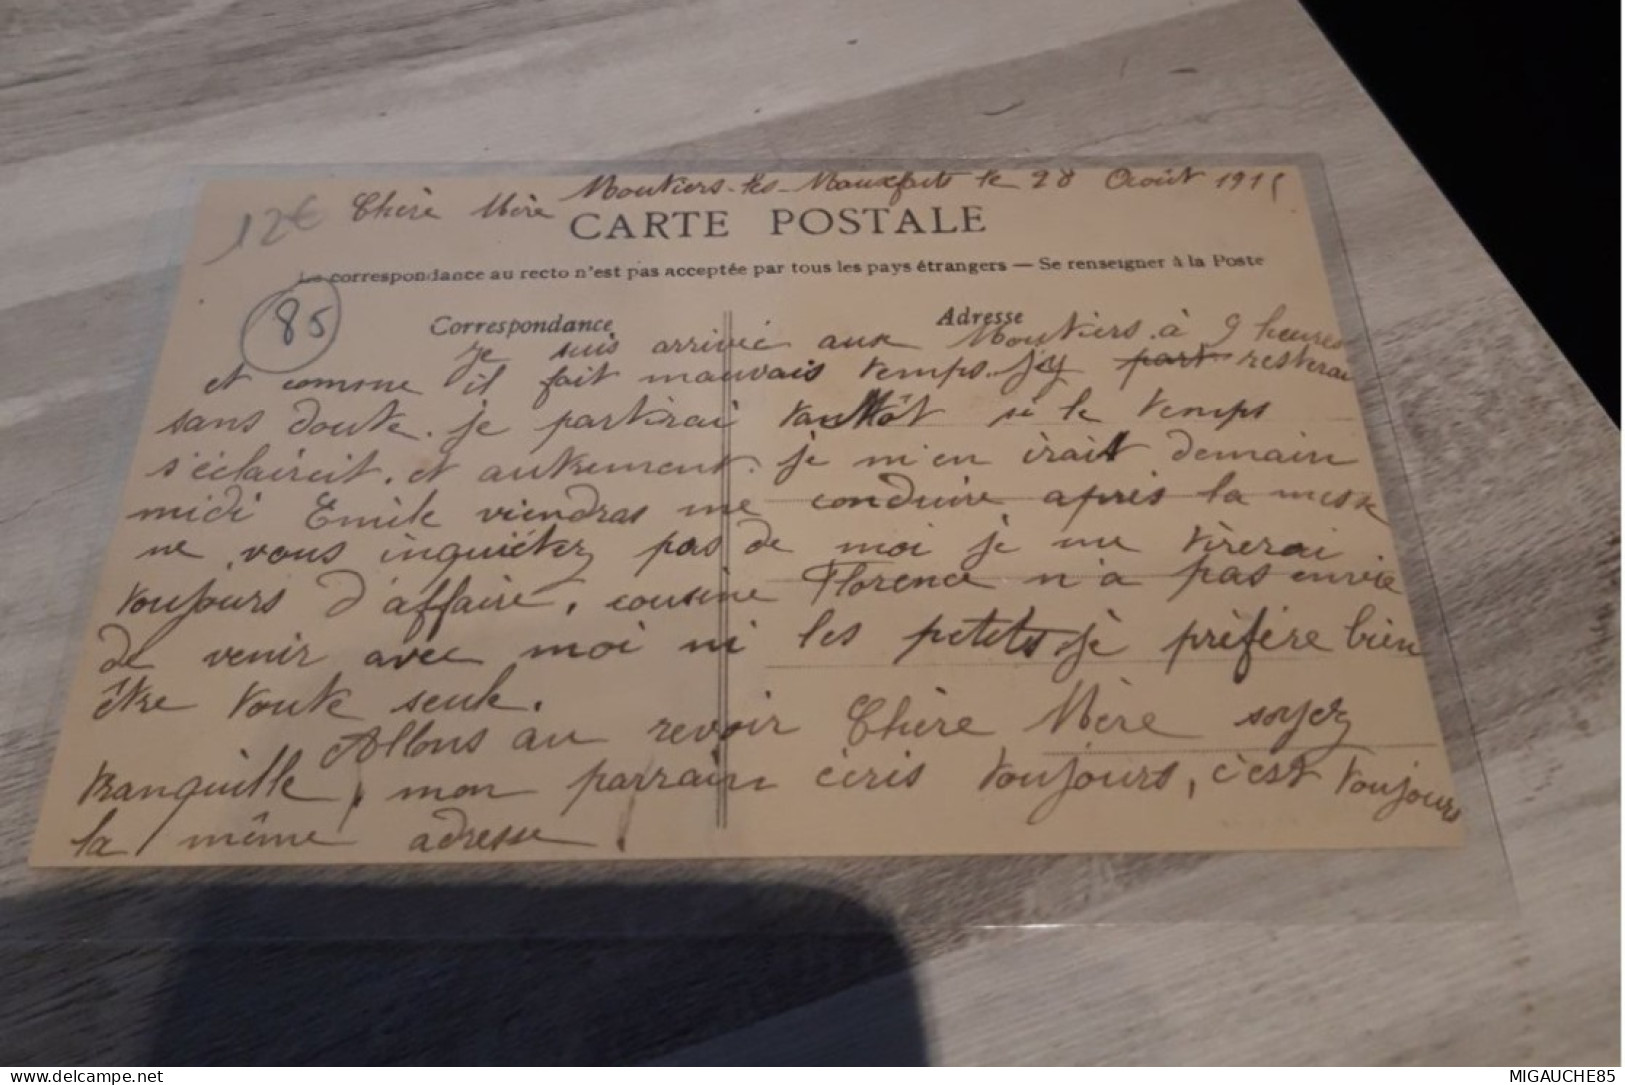 Moutiers-les-Mauxfaits le 28 Août 1915
12€ Chère Mère
CARTE POSTALE
La correspondance au recto n'est pas acceptée par tous les pays étrangers — Se renseigner à la Poste
85
Correspondance
Adresse
Je suis arrivée aux Moutiers à 9 heures
et comme il fait mauvais temps j'y part resterai
sans doute. je partirai tantôt si le temps
s'éclaircit. et autrement. je m'en irait demain
midi Emile viendras me conduire après la messe
ne vous inquiétez pas de moi je me tirerai
toujours d'affaire, cousine Florence n'a pas envie
de venir avec moi ni les petits, je préfère bien
être toute seule.
Allons au revoir Chère Mère soyez
tranquille, mon parrain écris toujours, c'est toujours
la même adresse.
MIGAUCHE85
delcampe.net